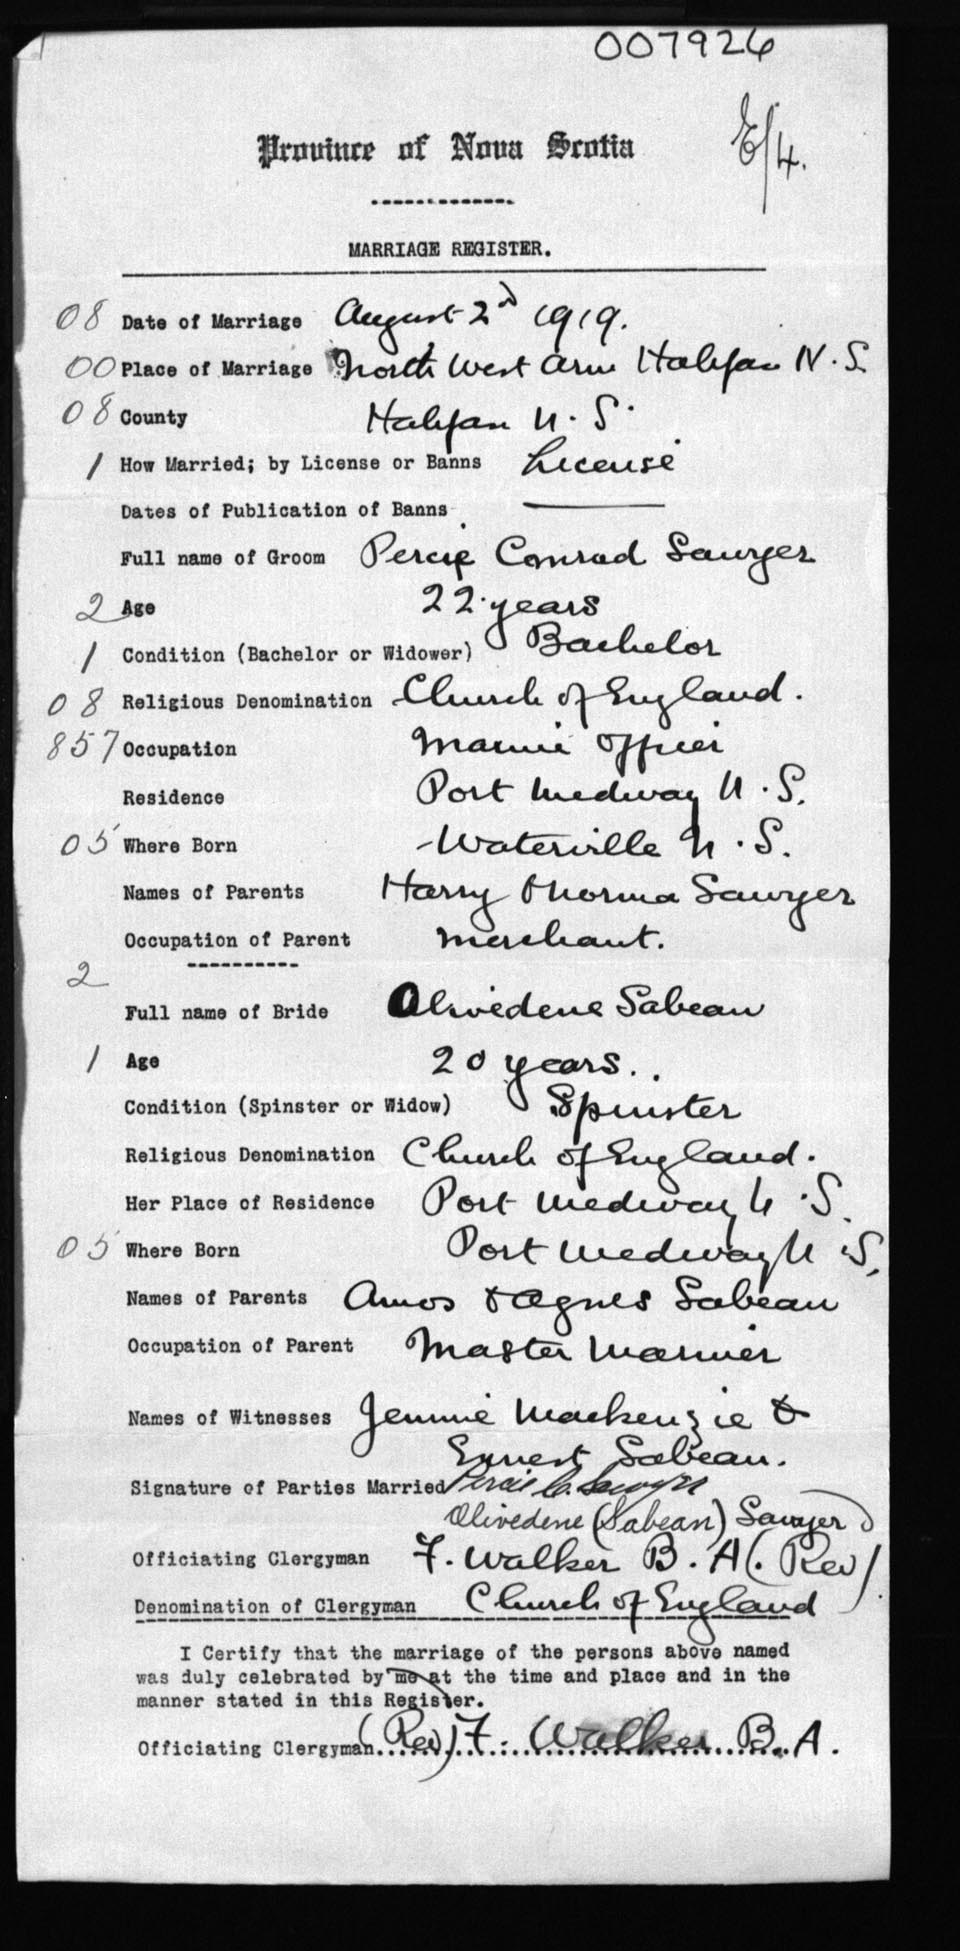 007926
E/4.
Province of Nova Scotia
MARRIAGE REGISTER.
08 Date of Marriage August 2nd 1919.
00 Place of Marriage North West Arm Halifax N. S.
08 County Halifax N. S.
1 How Married; by License or Banns License
Dates of Publication of Banns
Full name of Groom Percie Conrad Sawyer
2 Age 22 years
1 Condition (Bachelor or Widower) Bachelor
08 Religious Denomination Church of England.
857 Occupation Marine Officer
Residence Port Medway N. S.
05 Where Born Waterville N. S.
Names of Parents Harry & Norma Sawyer
Occupation of Parent Merchant.
2
Full name of Bride Olivedene Sabean
1 Age 20 years.
Condition (Spinster or Widow) Spinster
Religious Denomination Church of England.
Her Place of Residence Port Medway N. S.
05 Where Born Port Medway N. S.
Names of Parents Amos & Agnes Sabean
Occupation of Parent Master Mariner
Names of Witnesses Jennie Mackenzie &
Ernest Sabean.
Signature of Parties Married Percie C. Sawyer
Olivedene (Sabean) Sawyer
Officiating Clergyman F. Walker B. A (Rev)
Denomination of Clergyman Church of England
I Certify that the marriage of the persons above named
was duly celebrated by me at the time and place and in the
manner stated in this Register.
Officiating Clergyman (Rev) F. Walker B. A.